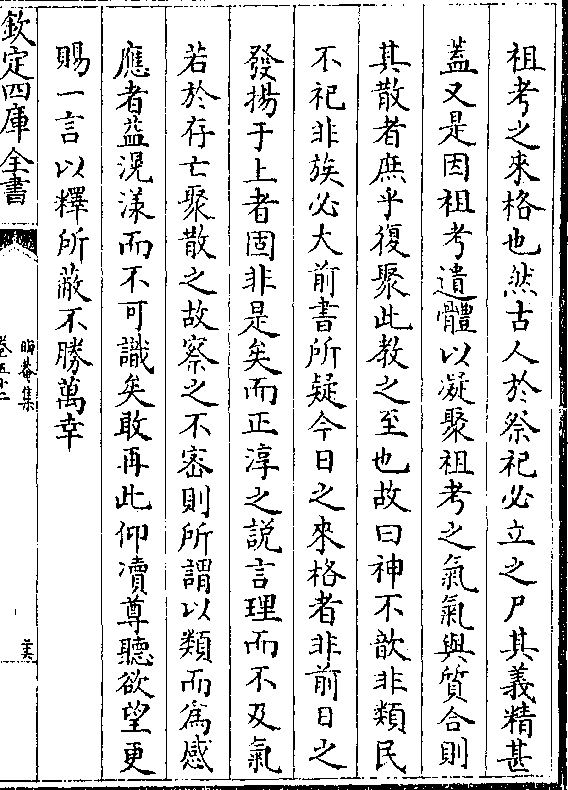 祖考之來格也然古人於祭祀必立之尸其義精甚
蓋又是因祖考遺體以凝聚祖考之氣氣與質合則
其散者庶乎復聚此教之至也故曰神不歆非類民
不祀非族必大前書所疑今日之來格者非前日之
發揚于上者固非是矣而正淳之説言理而不及氣
若於存亡聚散之故察之不審則所謂以類而為感
應者益滉漾而不可識矣敢再此仰凟尊聽欲望更
賜一言以釋所蔽不勝萬幸
欽定四庫全書
晦菴集
卷五十二